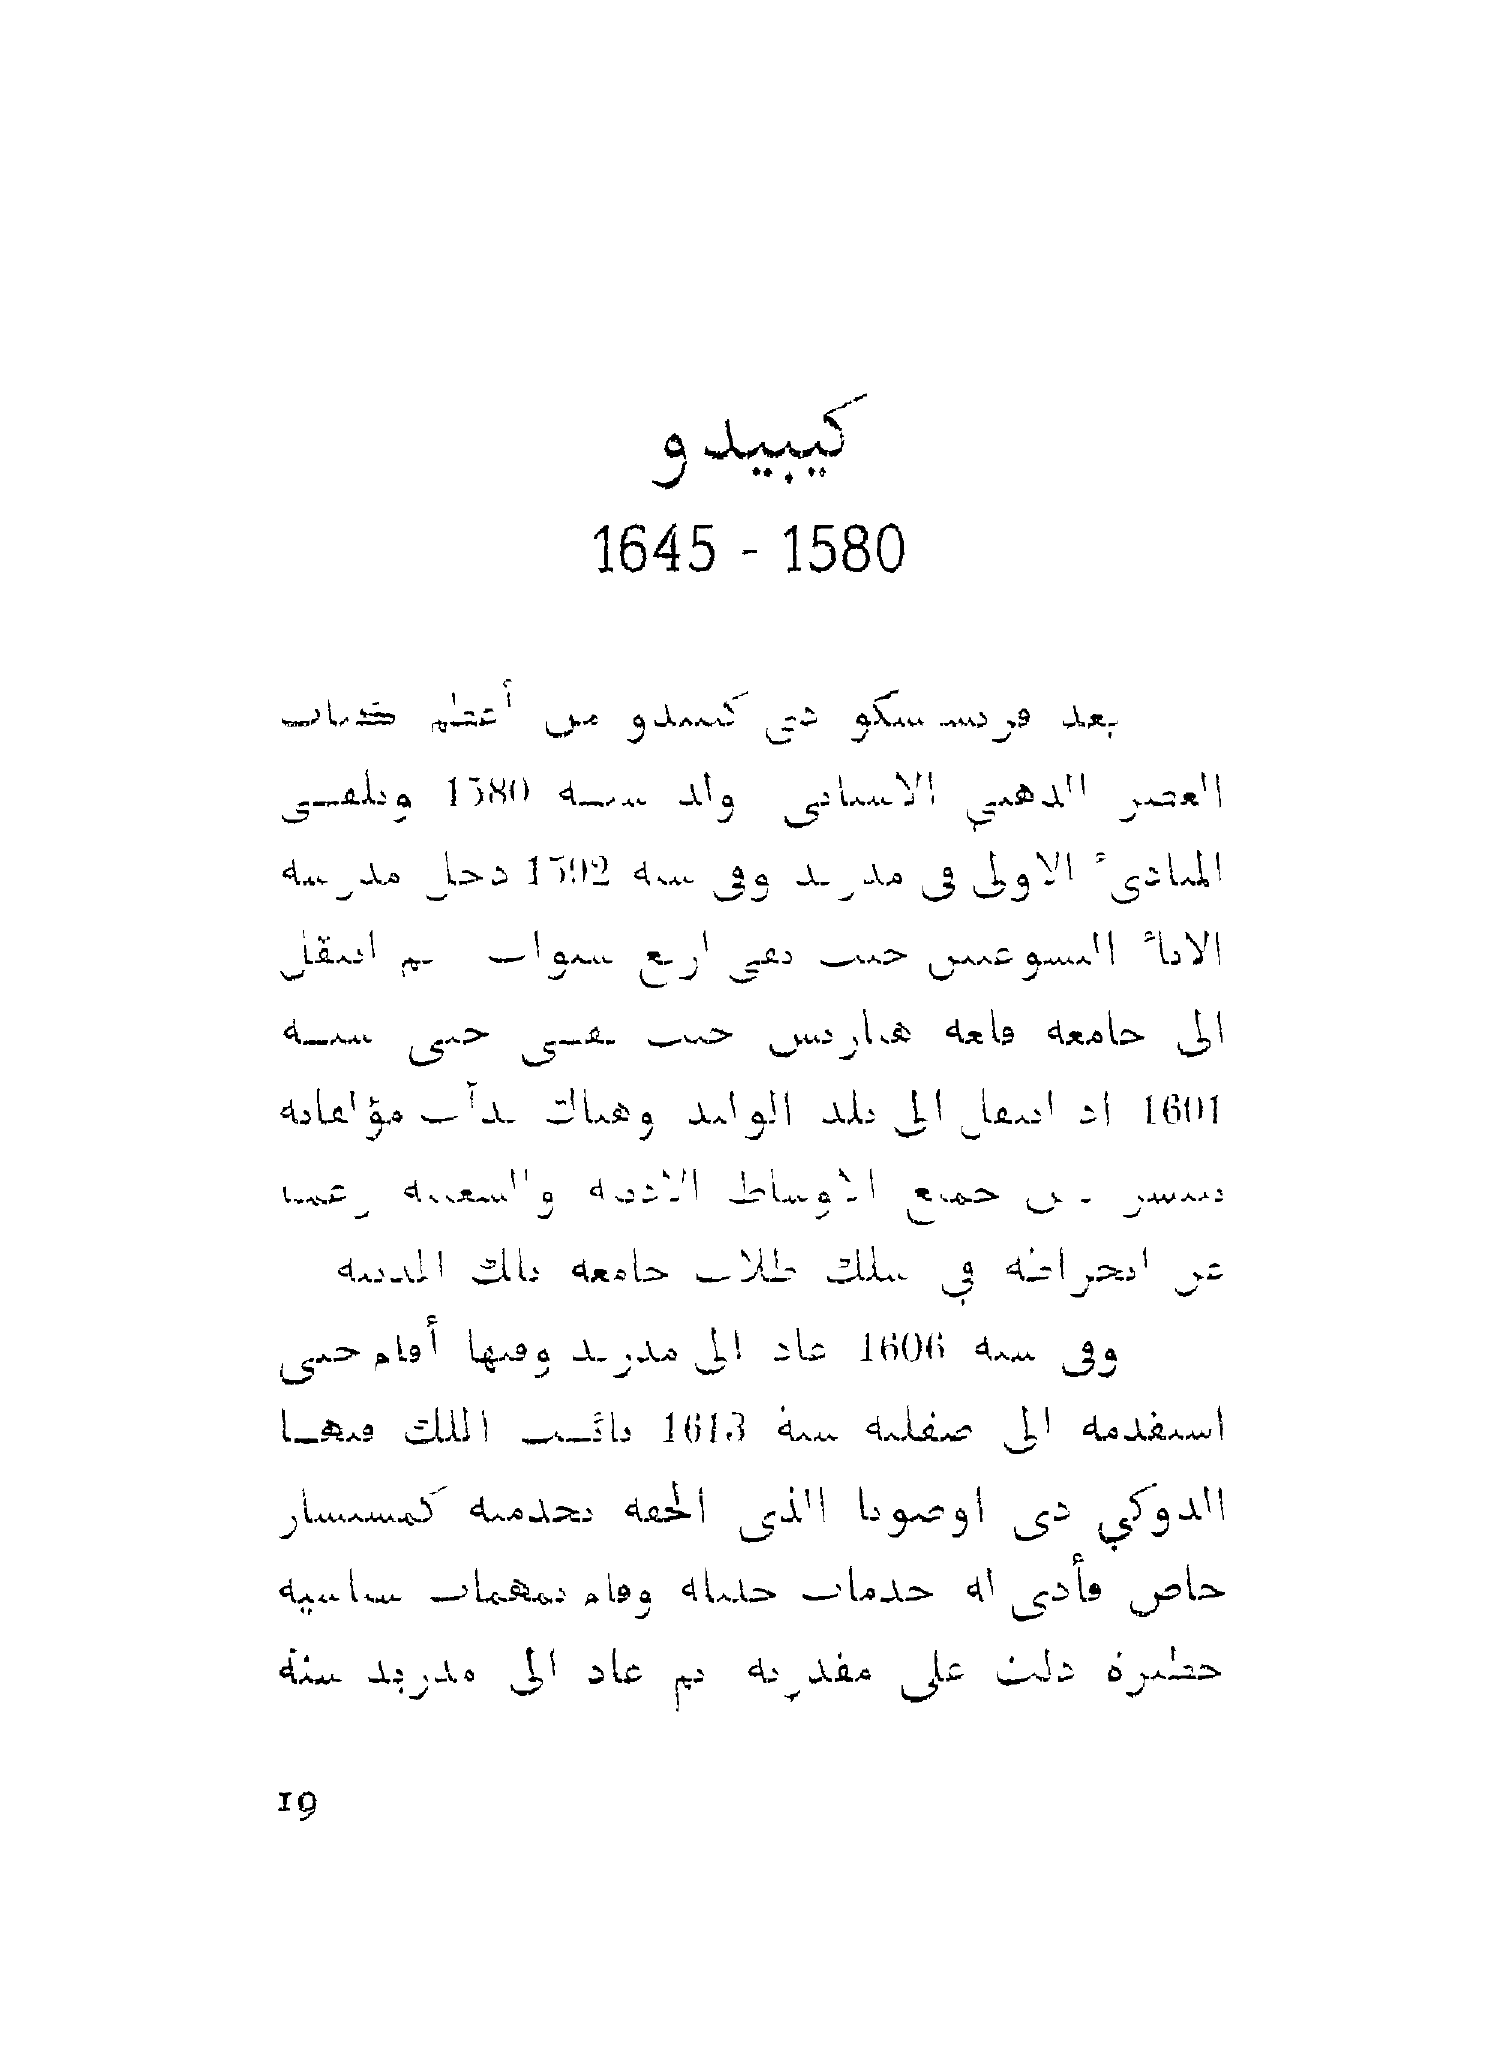 كيبيدو
1580 - 1645
يعد فرنسيسكو دي كيبيدو من أعظم
العصر الذهبي الاسباني ولد سنة 1580 وتلقى
المبادئ الاولى في مدريد وفي سنة 1592 دخل مدرسة
الاباء اليسوعيين حيث بقي اربع سنوات ثم انتقل
الى جامعة قلعة هناريس حيث بقي حتى سنة
1601 اذ انتقل الى بلد الوليد وهناك بدأت مؤلفاته
تنتشر بين جميع الاوساط الادبية والشعبية رغما
عن انخراطه في سلك طلاب جامعة تلك المدينة
وفي سنة 1606 عاد الى مدريد وفيها أقام حتى
استقدمه الى صقلية سنة 1613 نائب الملك فيها
الدوكي دي اوصونا الذي الحقه بخدمته كمستشار
خاص فأدى له خدمات جليلة وقام بمهمات سياسية
خطيرة دلت على مقدرته ثم عاد الى مدريد سنة
19